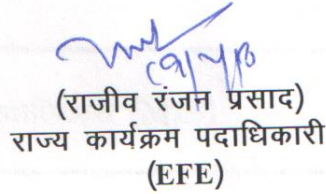 (राजीव रंजन प्रसाद)
राज्य कार्यक्रम पदाधिकारी
(EFE)